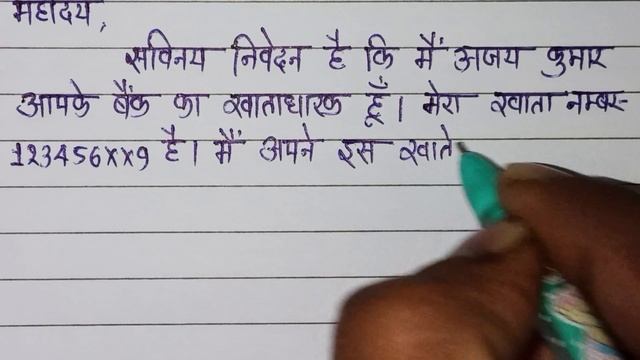 महोदय,
सविनय निवेदन है कि मैं अजय कुमार
आपके बैंक का खाताधारक हूँ। मेरा खाता नम्बर-
123456xx9 है। मैं अपने इस खाते